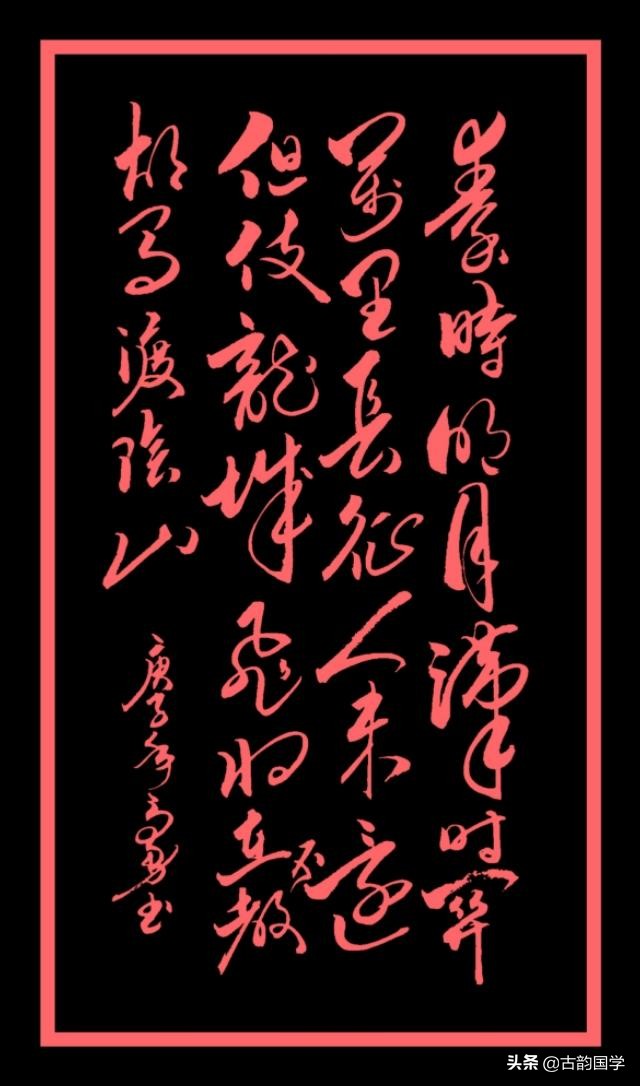 秦時明月漢时關
萬里長征人未還
但使龍城飛将在不教
胡馬渡陰山
庚子年高勇书
头条 @古韵国学